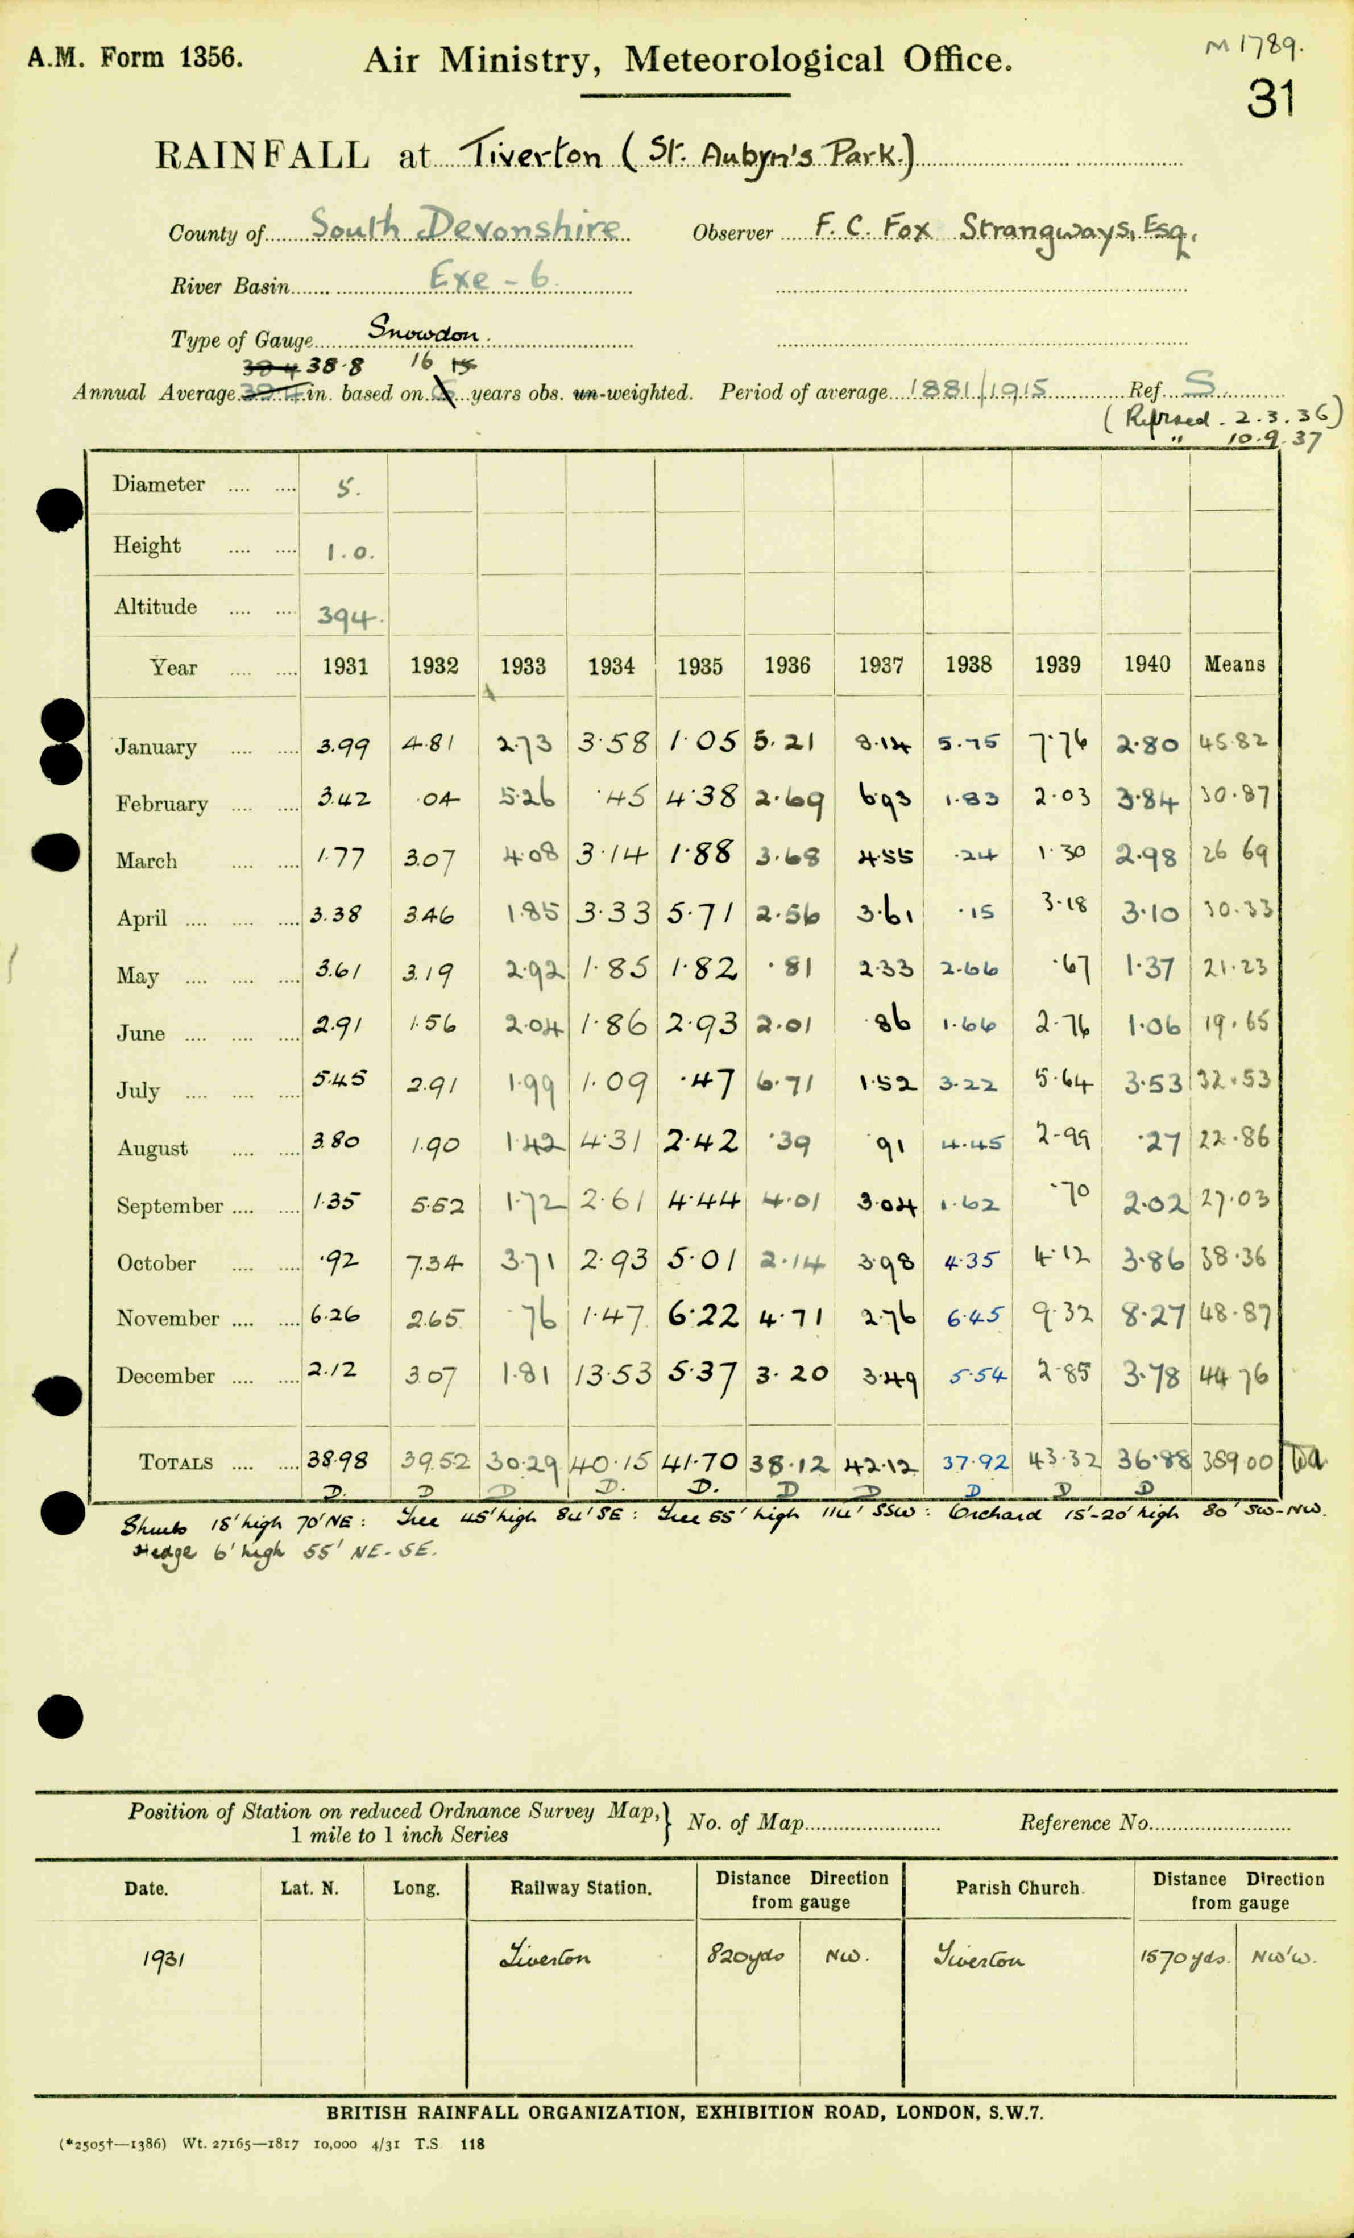 A.M. Form 1356.
Air Ministry, Meteorological Office.
M 1789.
31
RAINFALL at Tiverton (St. Aubyn's Park.)
County of South Devonshire Observer F. C. Fox Strangways, Esq.
River Basin Exe - 6
Type of Gauge Snowdon.
39.4 38.8 16 15
Annual Average in. based on years obs. un-weighted. Period of average 1881/1915 Ref. S
(Refrsed. 2.3.36)
" 10.9.37
Diameter .... .... 5.
Height .... .... 1.0.
Altitude .... .... 394.
Year .... .... 1931 1932 1933 1934 1935 1936 1937 1938 1939 1940 Means
January .... .... 3.99 4.81 2.73 3.58 1.05 5.21 8.14 5.75 7.76 2.80 45.82
February .... .... 3.42 .04 5.26 .45 4.38 2.69 6.93 1.83 2.03 3.84 30.87
March .... .... 1.77 3.07 4.08 3.14 1.88 3.68 4.55 .24 1.30 2.98 26 69
April .... .... .... 3.38 3.46 1.85 3.33 5.71 2.56 3.61 .15 3.18 3.10 30.33
May .... .... .... 3.61 3.19 2.92 1.85 1.82 .81 2.33 2.66 .67 1.37 21.23
June .... .... .... 2.91 1.56 2.04 1.86 2.93 2.01 .86 1.66 2.76 1.06 19.65
July .... .... .... 5.45 2.91 1.99 1.09 .47 6.71 1.52 3.22 5.64 3.53 32.53
August .... .... 3.80 1.90 1.42 4.31 2.42 .39 .91 4.45 2.99 .27 22.86
September .... .... 1.35 5.52 1.72 2.61 4.44 4.01 3.04 1.62 .70 2.02 27.03
October .... .... .92 7.34 3.71 2.93 5.01 2.14 3.98 4.35 4.12 3.86 38.36
November .... .... 6.26 2.65 .76 1.47 6.22 4.71 2.76 6.45 9.32 8.27 48.87
December .... .... 2.12 3.07 1.81 13.53 5.37 3.20 3.49 5.54 2.85 3.78 44 76
TOTALS .... .... 38.98 39.52 30.29 40.15 41.70 38.12 42.12 37.92 43.32 36.88 389.00
D. D D D. D. D D D D D
Shrubs 15' high 70' NE: Tree 45' high 84' SE: Tree 55' high 114' SSW: Orchard 15'-20' high 80' SW-NW.
Hedge 6' high 55' NE-SE.
Position of Station on reduced Ordnance Survey Map, 1 mile to 1 inch Series } No. of Map Reference No.
Date. Lat. N. Long. Railway Station. Distance Direction from gauge Parish Church. Distance Direction from gauge
1931 Tiverton 820yds NW. Tiverton 1570yds. NW'W.
BRITISH RAINFALL ORGANIZATION, EXHIBITION ROAD, LONDON, S.W.7.
(*2505†—1386) Wt. 27165—1817 10,000 4/31 T.S. 118